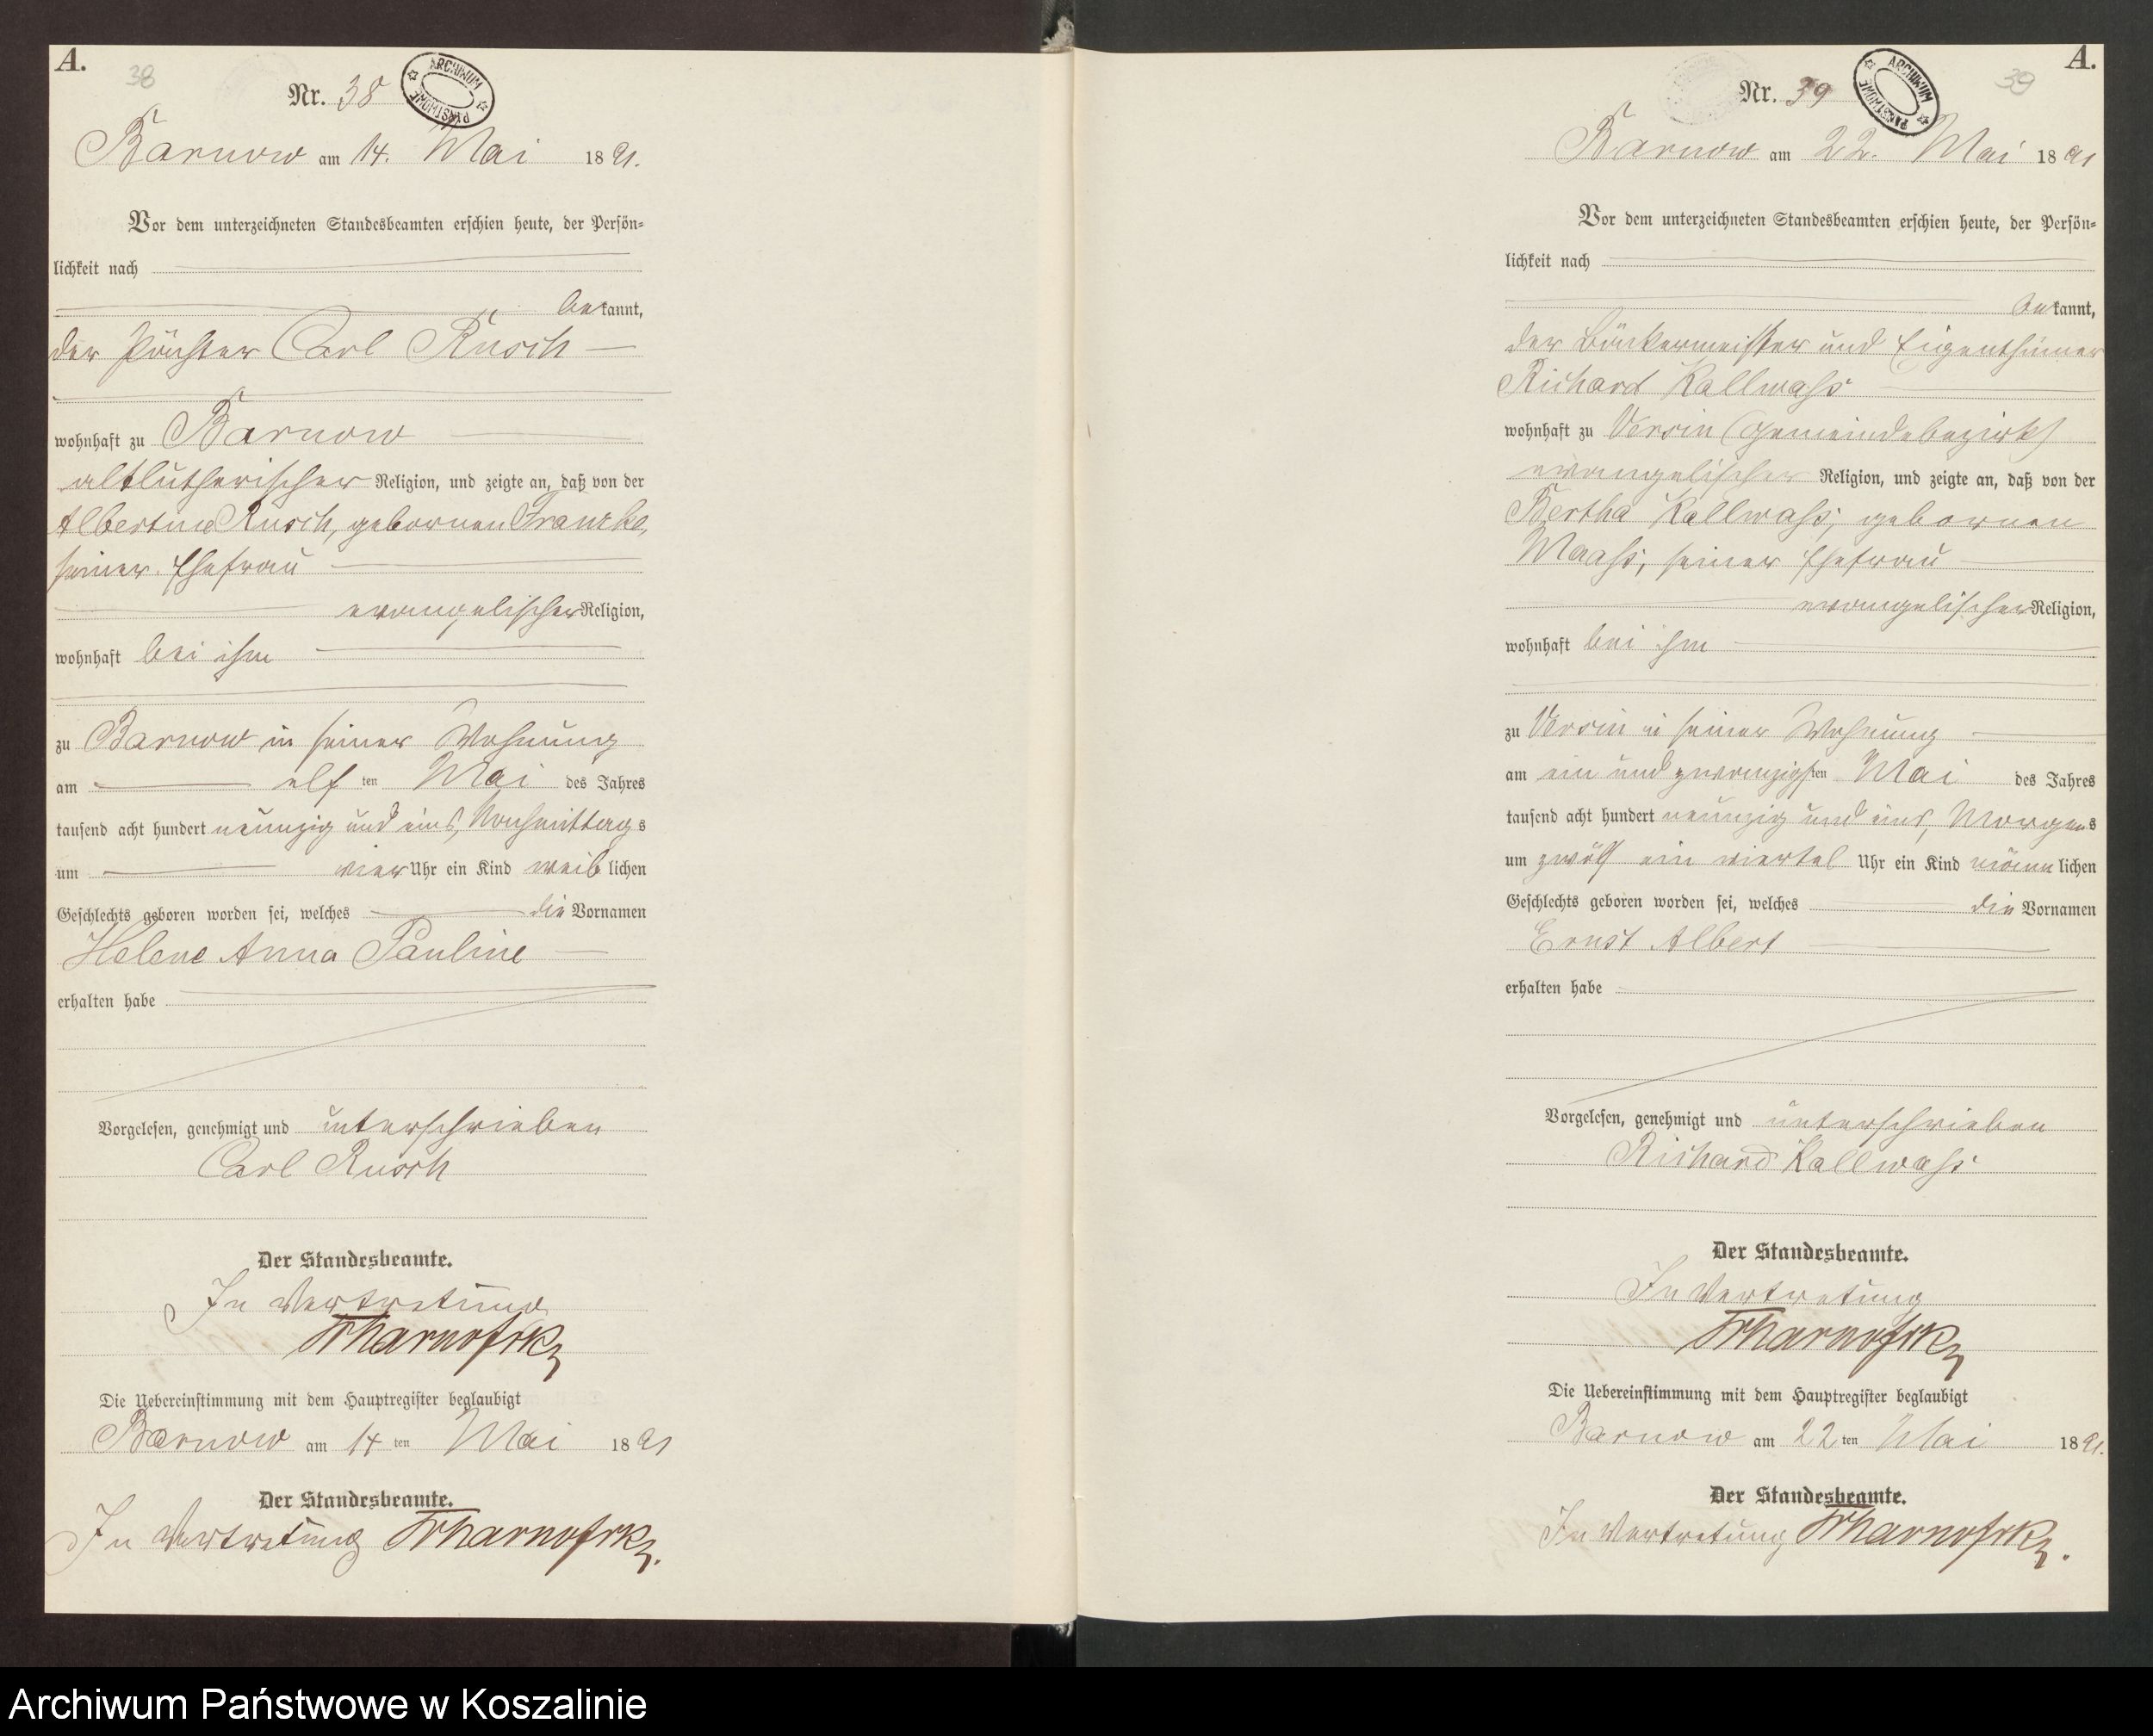 A.
38
Nr. 38
ARCHIWUM PAŃSTWOWE
Barnow am 14. Mai 1891.
Vor dem unterzeichneten Standesbeamten erschien heute, der Persön-
lichkeit nach
bekannt,
der Pächter Carl Rusch
wohnhaft zu Barnow
altlutherischer Religion, und zeigte an, daß von der
Albertine Rusch, gebornen Franzke,
seiner Ehefrau
evangelischer Religion,
wohnhaft bei ihm
zu Barnow in seiner Wohnung
am elf ten Mai des Jahres
tausend acht hundert neunzig und eins, Nachmittags
um vier Uhr ein Kind weiblichen
Geschlechts geboren worden sei, welches die Vornamen
Helene Anna Pauline
erhalten habe
Vorgelesen, genehmigt und unterschrieben
Carl Rusch
Der Standesbeamte.
In Vertretung
Die Uebereinstimmung mit dem Hauptregister beglaubigt
Barnow am 14 ten Mai 1891
Der Standesbeamte.
In Vertretung
A.
39
Nr. 39
ARCHIWUM PAŃSTWOWE
Barnow am 22. Mai 1891
Vor dem unterzeichneten Standesbeamten erschien heute, der Persön-
lichkeit nach
bekannt,
der Bäckermeister und Eigenthümer
Richard Kallwass
wohnhaft zu Versin (Gemeindebezirk)
evangelischer Religion, und zeigte an, daß von der
Bertha Kallwass, gebornen
Maass, seiner Ehefrau
evangelischer Religion,
wohnhaft bei ihm
zu Versin in seiner Wohnung
am ein und zwanzigsten Mai des Jahres
tausend acht hundert neunzig und eins, Morgens
um zwölf ein viertel Uhr ein Kind männlichen
Geschlechts geboren worden sei, welches die Vornamen
Ernst Albert
erhalten habe
Vorgelesen, genehmigt und unterschrieben
Richard Kallwass
Der Standesbeamte.
In Vertretung
Die Uebereinstimmung mit dem Hauptregister beglaubigt
Barnow am 22 ten Mai 1891.
Der Standesbeamte.
In Vertretung
Archiwum Państwowe w Koszalinie